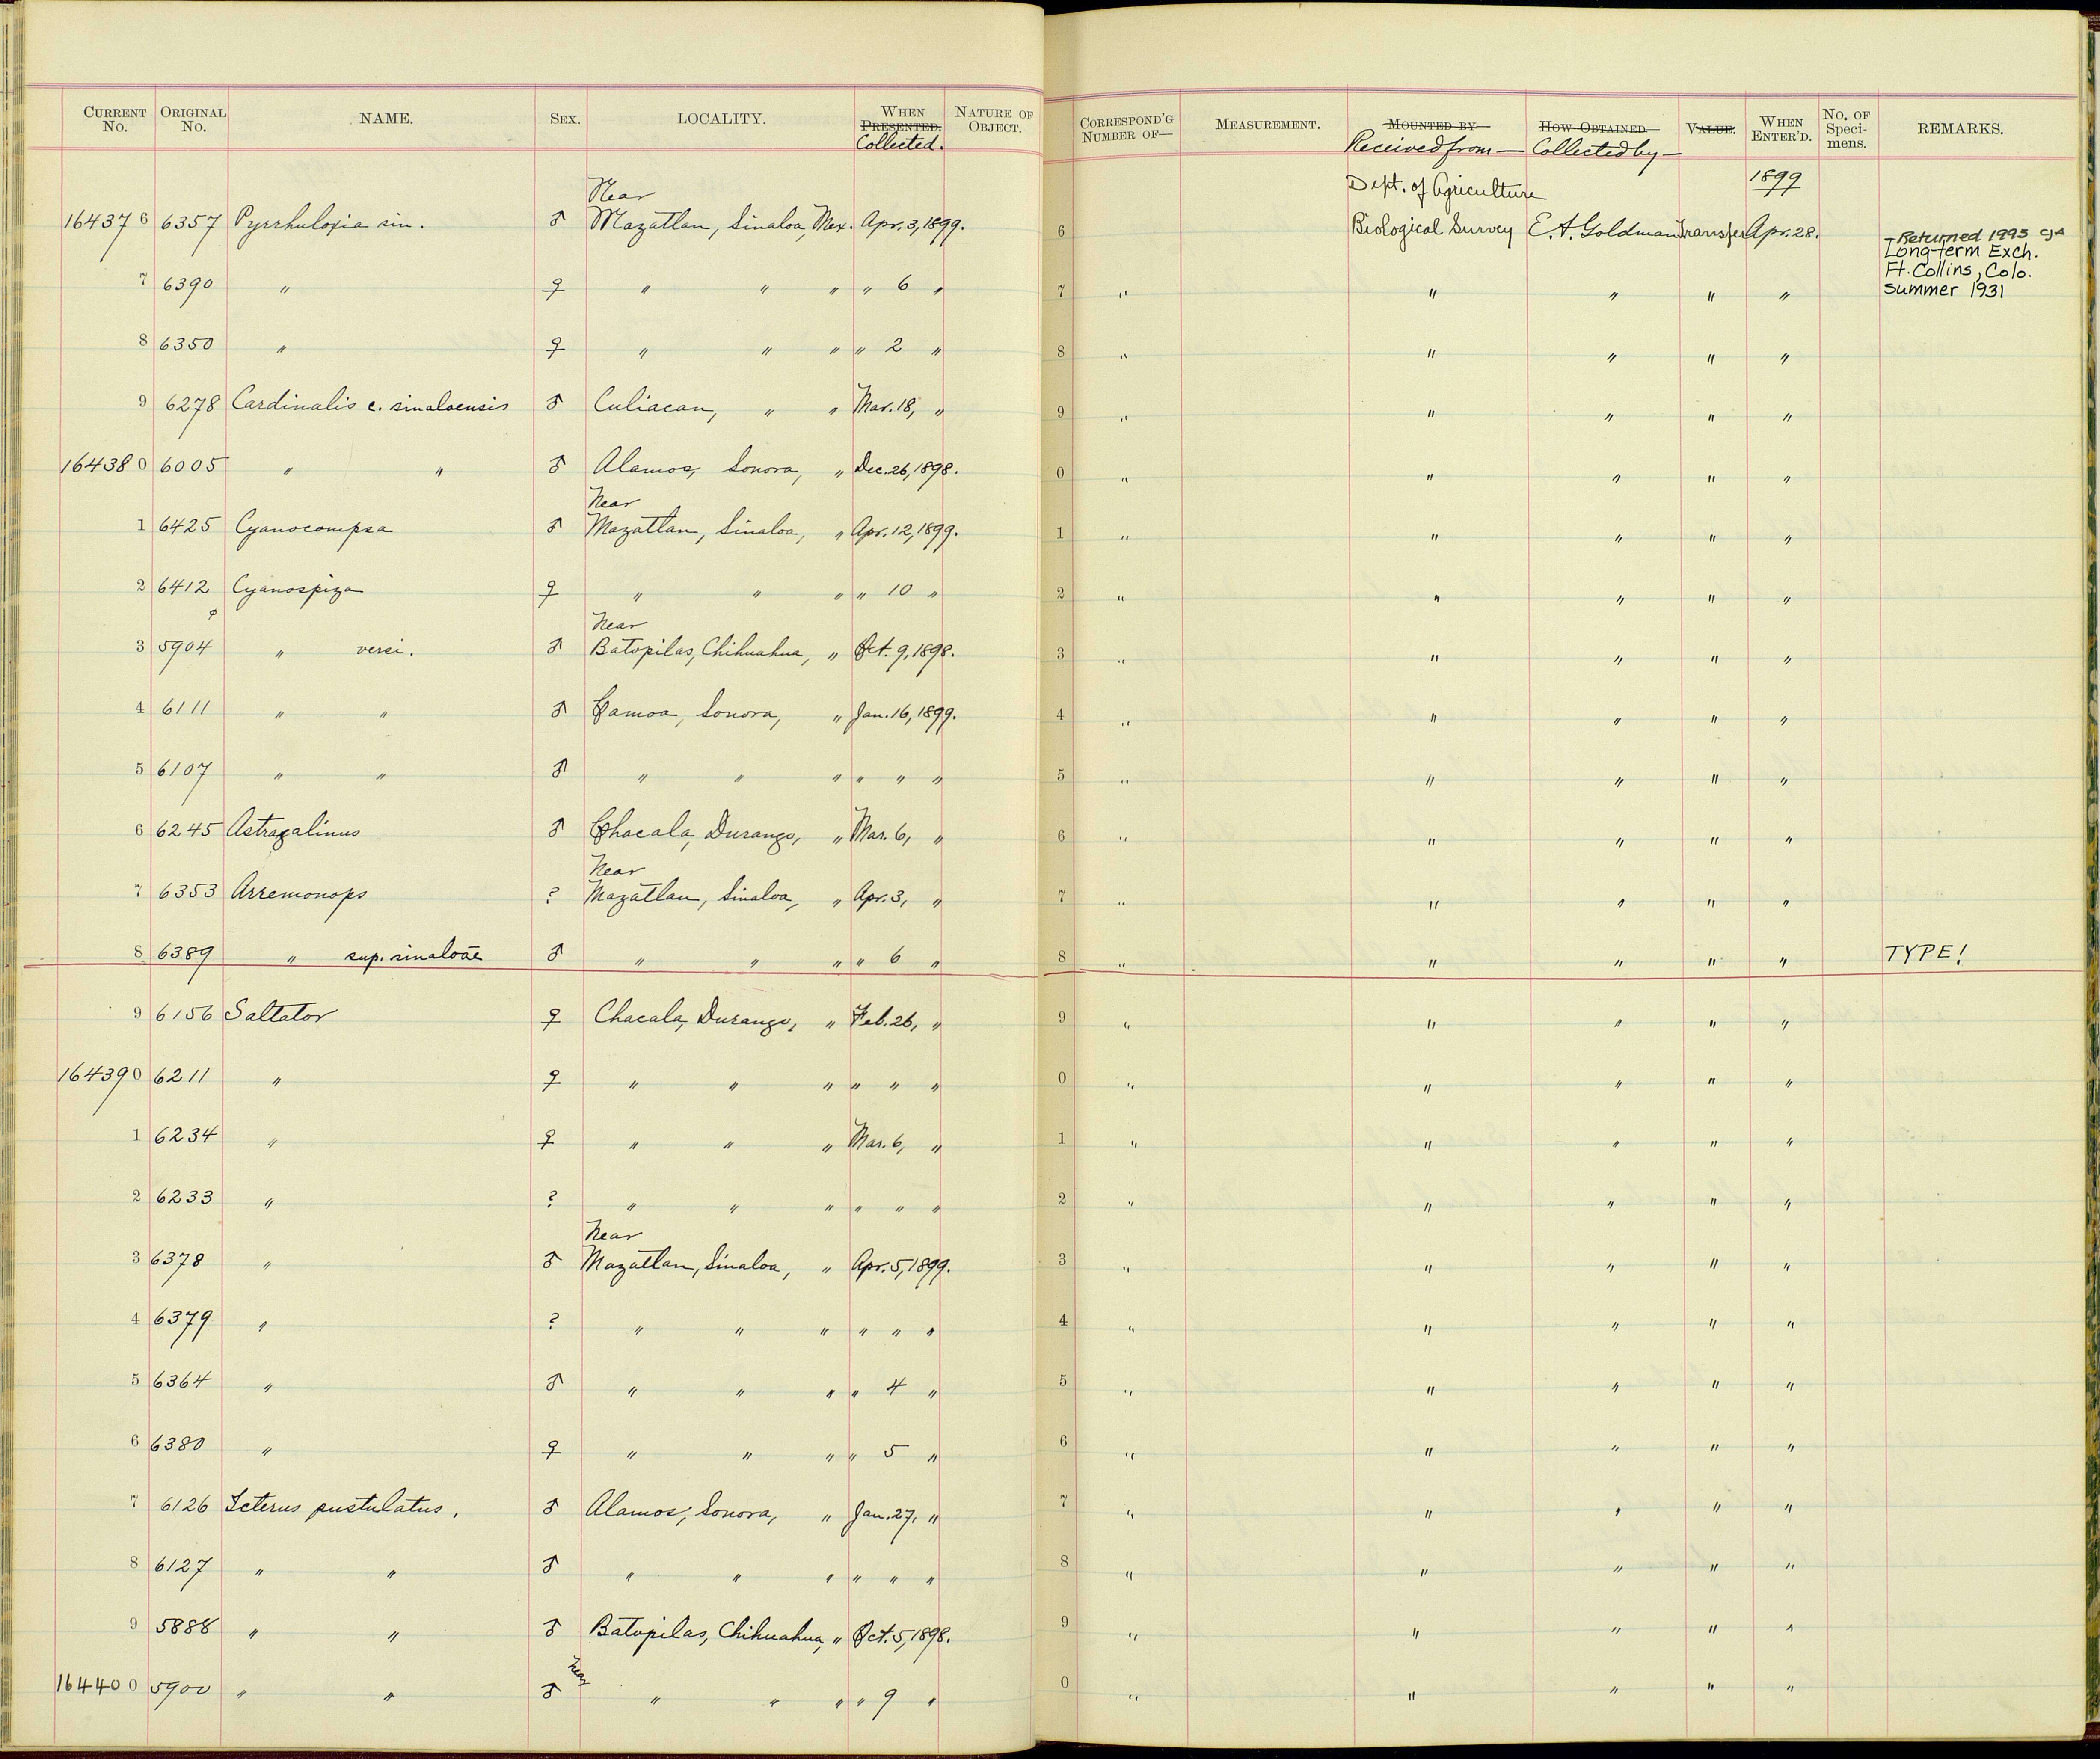 CURRENT No. ORIGINAL No. NAME. SEX. LOCALITY. WHEN PRESENTED. Collected. NATURE OF OBJECT. CORRESPOND'G NUMBER OF— MEASUREMENT. MOUNTED BY Received from — HOW OBTAINED Collected by — VALUE. WHEN ENTER'D. No. OF Speci-mens. REMARKS.
Near Dept. of Agriculture 1899
164376 6357 Pyrrhuloxia sin. ♂ Mazatlan, Sinaloa, Mex. Apr. 3, 1899. 6 Biological Survey E. A. Goldman Transfer Apr. 28.
7 6390 " ♀ " " " " 6 " 7 " " " " " Returned 1995 Long-term Exch. Ft. Collins, Colo. summer 1931
8 6350 " ♀ " " " " 2 " 8 " " " " "
9 6278 Cardinalis c. sinaloensis ♂ Culiacan, " " Mar. 18, " 9 " " " " "
164380 6005 " " ♂ Alamos, Sonora, " Dec. 26, 1898. 0 " " " " "
Near
1 6425 Cyanocompsa ♂ Mazatlan, Sinaloa, " Apr. 12, 1899. 1 " " " " "
2 6412 Cyanospiza ♀ " " " " 10 " 2 " " " " "
Near
3 5904 " versi. ♂ Batopilas, Chihuahua, " Oct. 9, 1898. 3 " " " " "
4 6111 " " ♂ Camoa, Sonora, " Jan. 16, 1899. 4 " " " " "
5 6107 " " ♂ " " " " " " 5 " " " " "
6 6245 Astragalinus ♂ Chacala, Durango, " Mar. 6, " 6 " " " " "
Near
7 6353 Arremonops ? Mazatlan, Sinaloa, " Apr. 3, " 7 " " " " "
8 6389 " sup. sinaloæ ♂ " " " " 6 " 8 " " " " " TYPE!
9 6156 Saltator ♀ Chacala, Durango, " Feb. 26, " 9 " " " " "
164390 6211 " ♀ " " " " " " 0 " " " " "
1 6234 " ♀ " " " Mar. 6, " 1 " " " " "
2 6233 " ? " " " " " " 2 " " " " "
Near
3 6378 " ♂ Mazatlan, Sinaloa, " Apr. 5, 1899. 3 " " " " "
4 6379 " ? " " " " " " 4 " " " " "
5 6364 " ♂ " " " " 4 " 5 " " " " "
6 6380 " ♀ " " " " 5 " 6 " " " " "
7 6126 Icterus pustulatus. ♂ Alamos, Sonora, " Jan. 27, " 7 " " " " "
8 6127 " " ♂ " " " " " " 8 " " " " "
9 5888 " " ♂ Batopilas, Chihuahua, " Oct. 5, 1898. 9 " " " " "
164400 5900 " " ♂ near " " " " 9 " 0 " " " " "